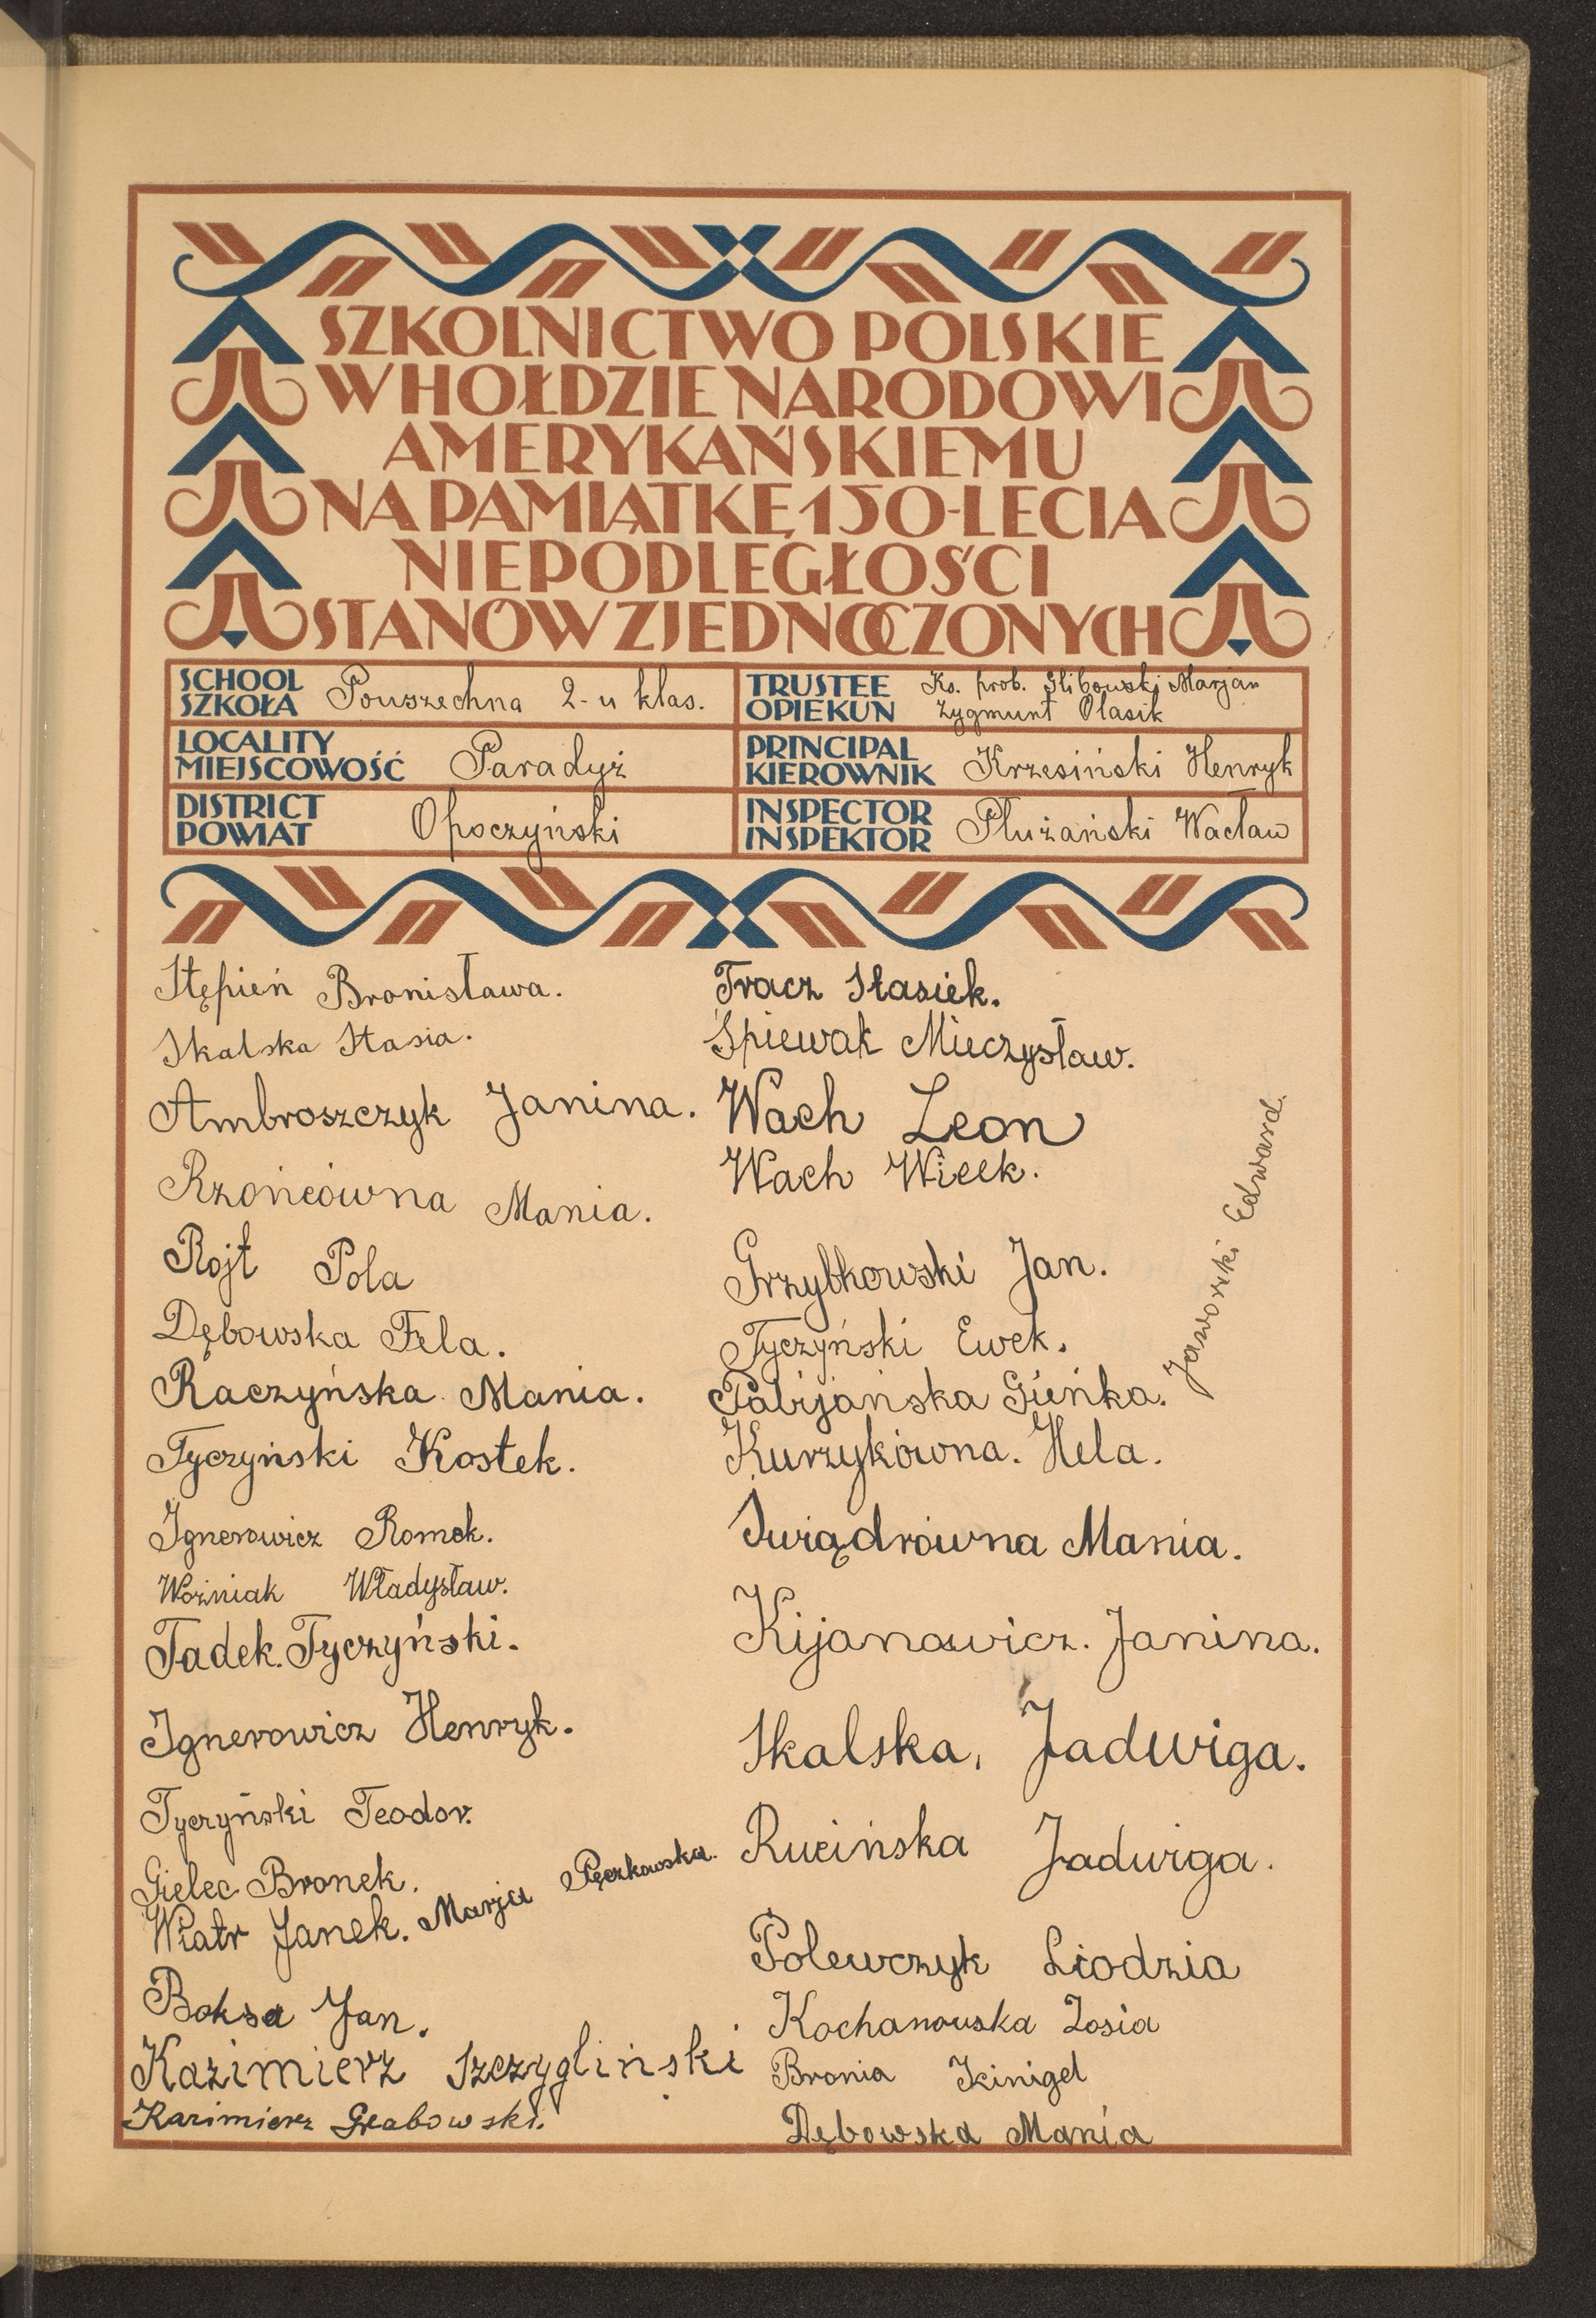 SZKOLNICTWO POLSKIE
W HOŁDZIE NARODOWI
AMERYKAŃSKIEMU
NA PAMIĄTKĘ 150-LECIA
NIEPODLEGŁOŚCI
STANÓW ZJEDNOCZONYCH
SCHOOL
SZKOŁA Powszechna 2-u klas.
LOCALITY
MIEJSCOWOŚĆ Paradyż
DISTRICT
POWIAT Opoczyński
TRUSTEE Ks. prob. Glibowski Marjan
OPIEKUN Zygmunt Olasik
PRINCIPAL
KIEROWNIK Krzesiński Henryk
INSPECTOR
INSPEKTOR Płużański Wacław
Stępień Bronisława.
Skalska Stasia.
Ambroszczyk Janina.
Rzońcówna Mania.
Rojt Pola
Dębowska Fela.
Raczyńska Mania.
Tyczyński Kostek.
Ignerowicz Romek.
Woźniak Władysław.
Tadek. Tyczyński.
Ignerowicz Henryk.
Tyczyński Teodor.
Gielec Bronek.
Wiatr Janek. Marja Pęczkowska.
Boksa Jan.
Kazimierz Szczygliński
Kazimierz Grabowski.
Tracz Stasiek.
Śpiewak Mieczysław.
Wach Leon
Wach Wicek.
Grzybkowski Jan.
Tyczyński Ewek.
Pabijańska Gieńka.
Kurzykówna. Hela.
Świądrówna Mania.
Kijanowicz. Janina.
Skalska, Jadwiga.
Rucińska Jadwiga.
Polewczyk Liodzia
Kochanowska Zosia
Bronia
Dębowska Mania
Jaworski Edward.